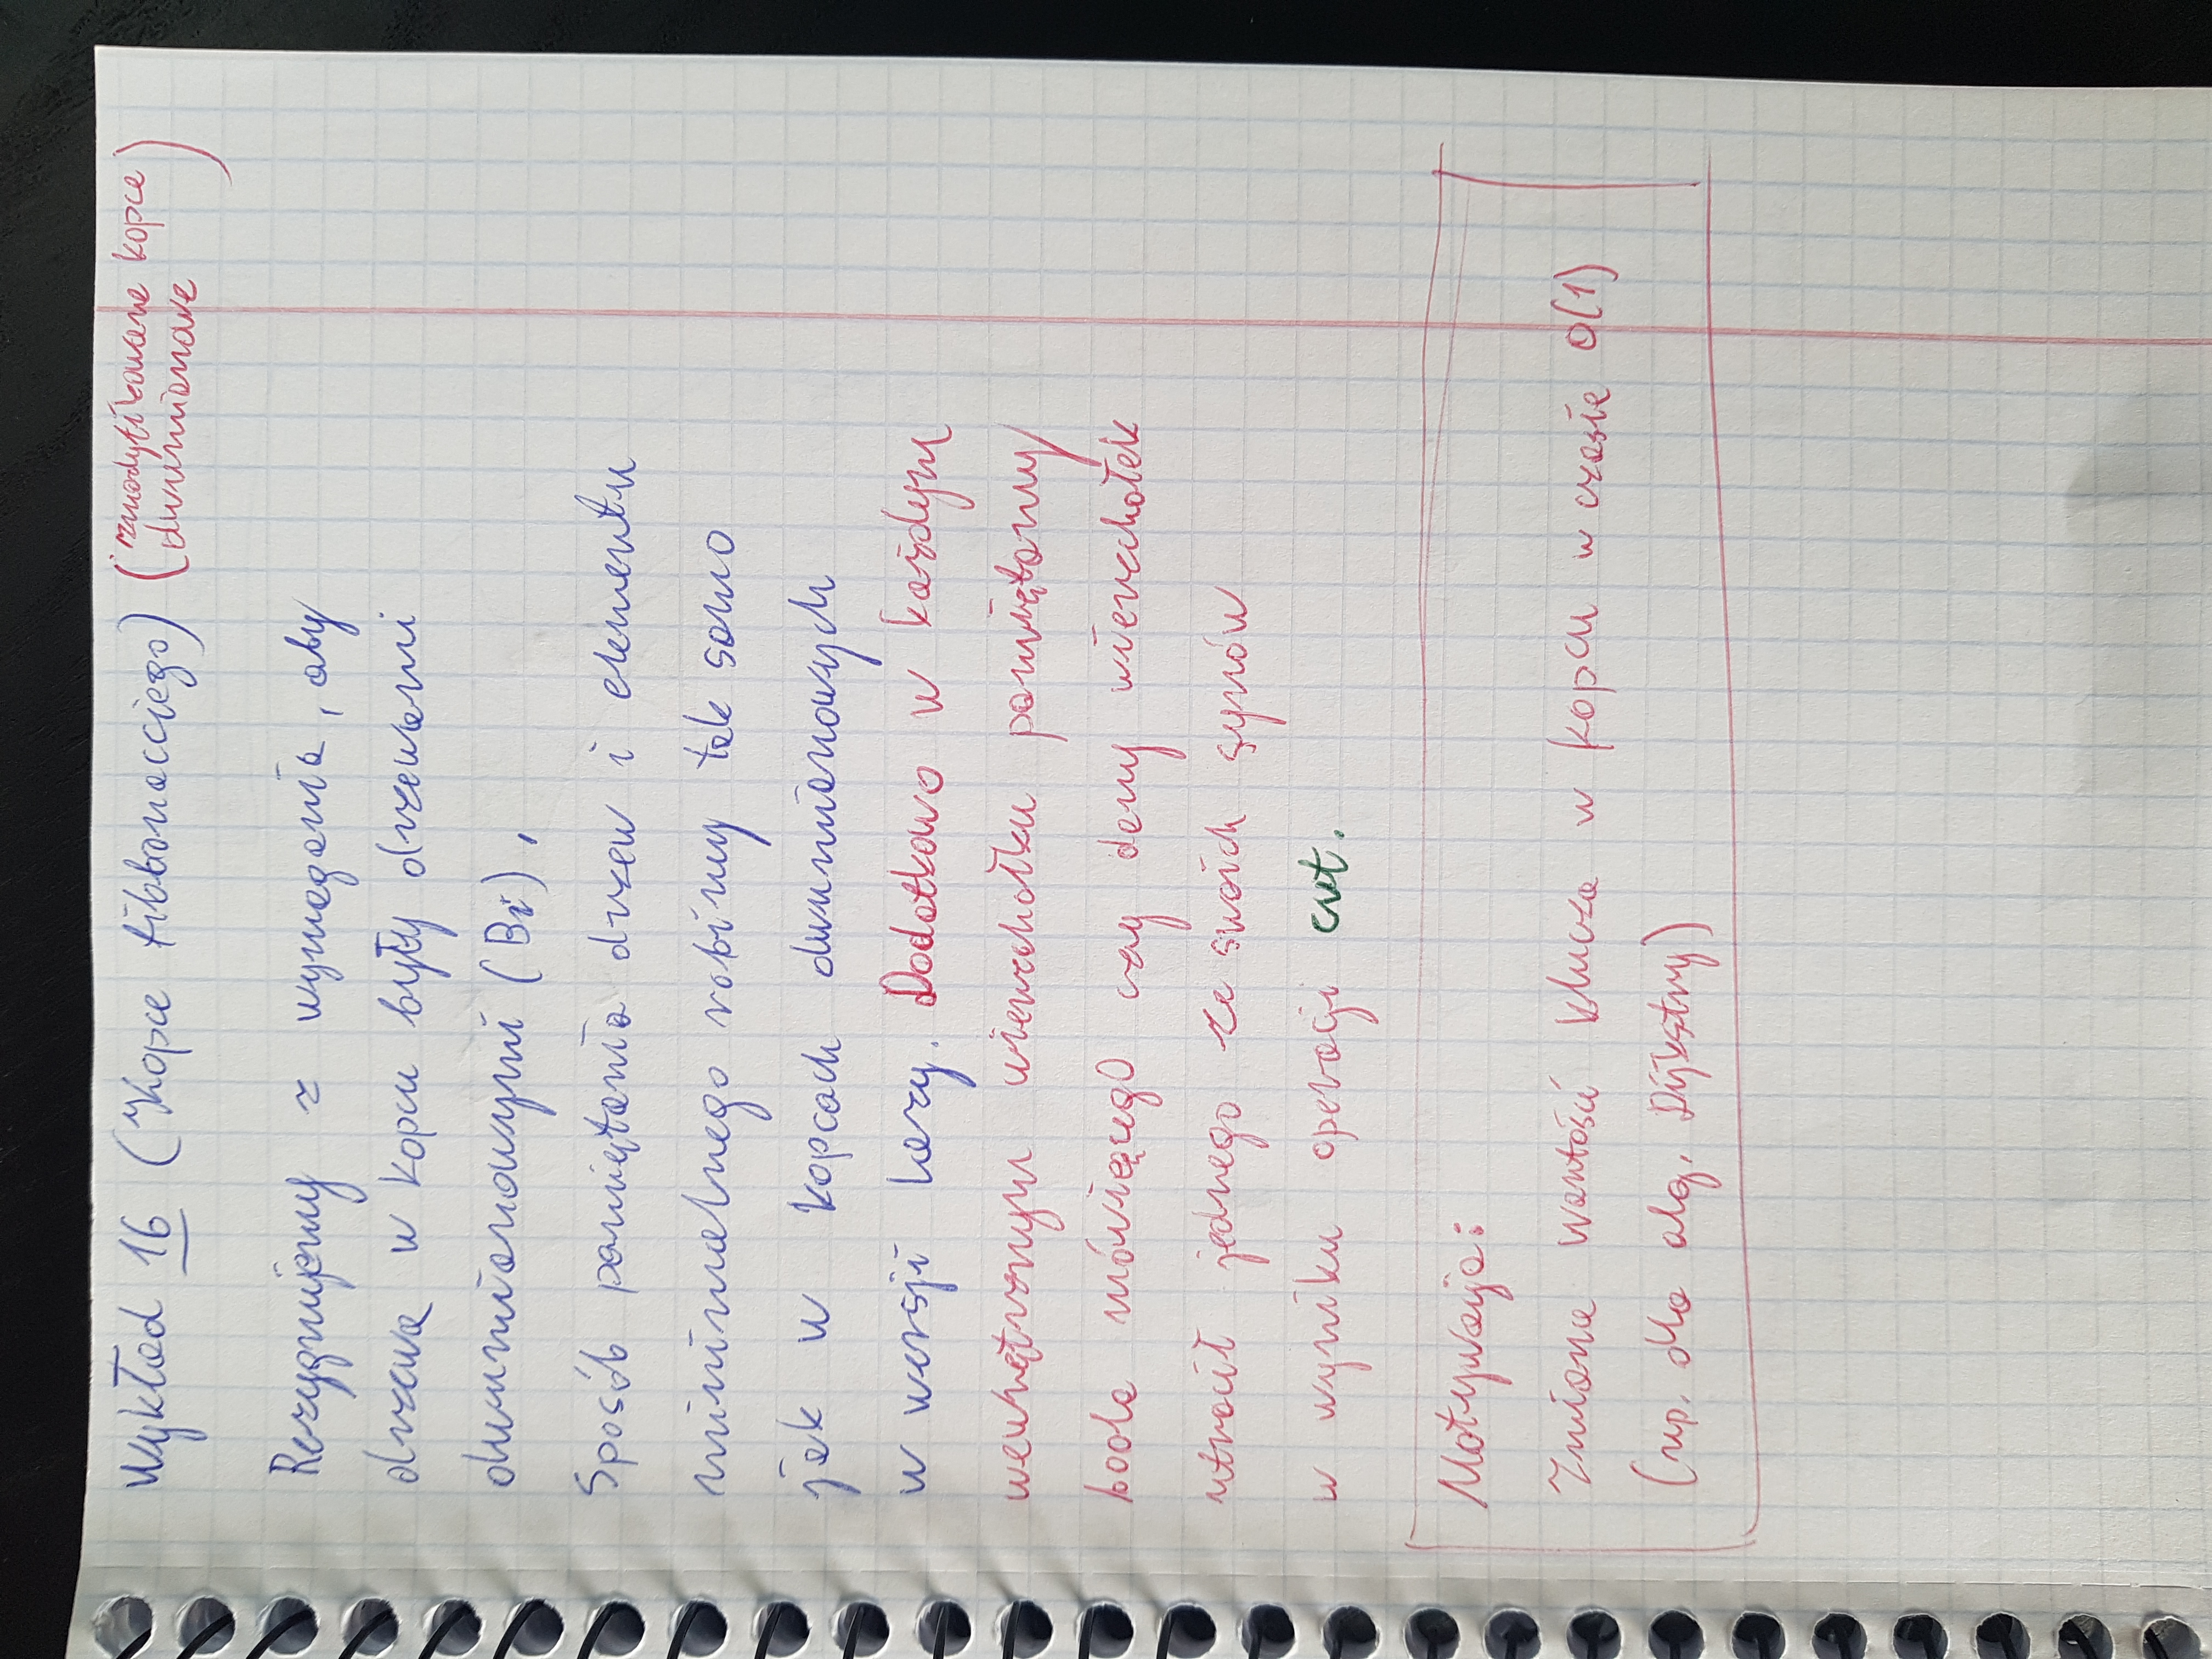 Wykład 16 (Kopce fibbonacciego) (zmodyfikowane kopce
dwumianowe)
Rezygnujemy z wymagania, aby
drzewa w kopcu były drzewami
dwumianowymi (Bi).
Sposób pamiętania drzew i elementu
minimalnego robimy tak samo
jak w kopcach dwumianowych
w wersji lazy. Dodatkowo w każdym
wewnętrznym wierzchołku pamiętamy
boola mówiącego czy dany wierzchołek
utracił jednego ze swoich synów
w wyniku operacji cut.
Motywacja:
Zmiana wartości klucza w kopcu w czasie O(1)
(np. dla alg. Dijkstry)